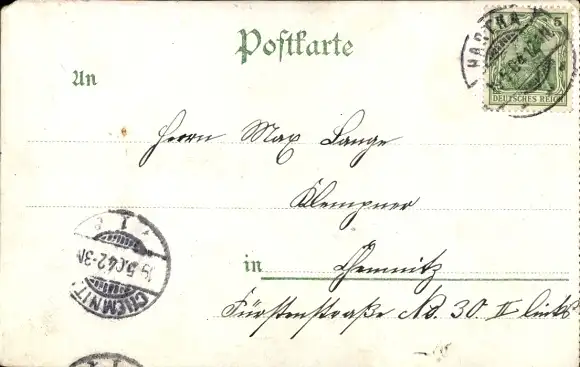 Postkarte
HARTHA
5
DEUTSCHES REICH
An
Herrn Max Lange
Klempner
in Chemnitz
Fürstenstraße No. 30 II links
CHEMNITZ
5.04.2-3N